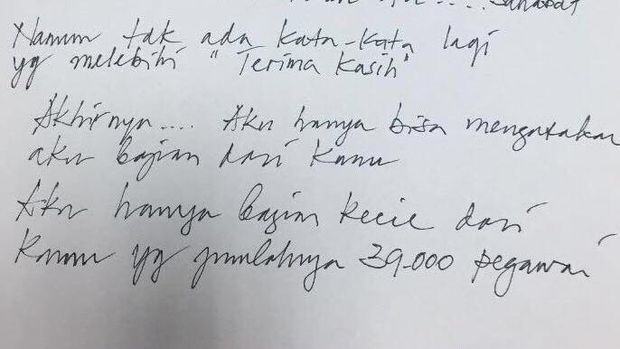 .... Sahabat
Namun tak ada kata-kata lagi
yg melebihi "Terima Kasih"
Akhirnya.... Aku hanya bisa mengatakan
aku bagian dari Kamu
Aku hanya bagian kecil dari
Kamu yg jumlahnya 39.000 pegawai